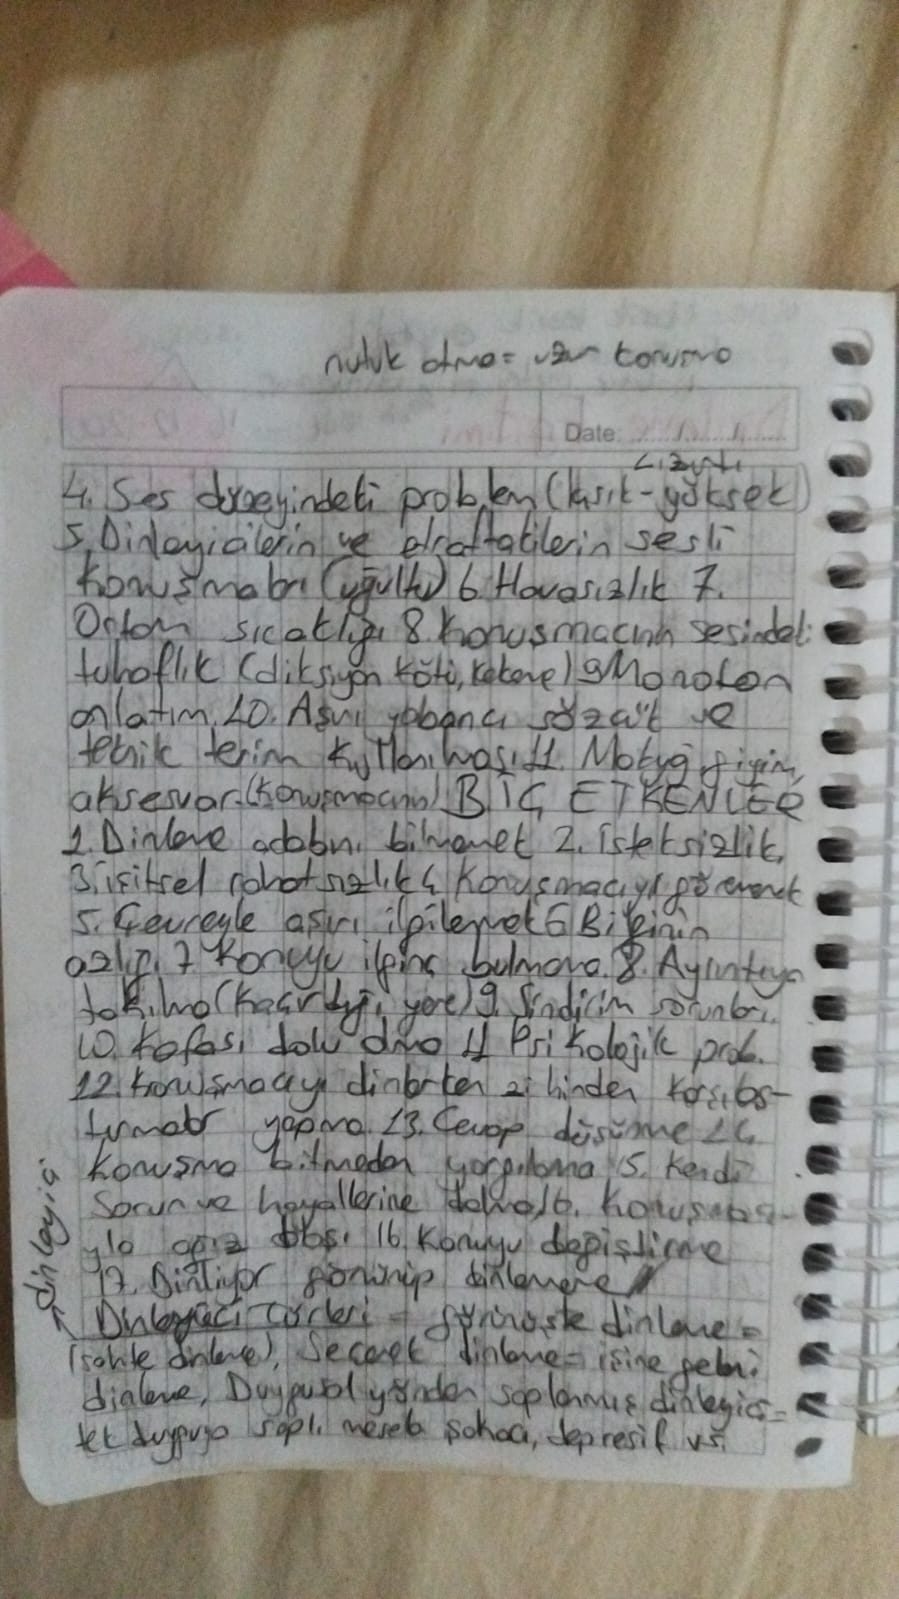 nutuk atma = uzun konuşma
Date:
4. Ses düzeyindeki problem (kısık - yüksek)
5. Dinleyicilerin ve etraftakilerin sesli
konuşmaları (uğultu) 6. Havasızlık 7.
Ortam sıcaklığı 8. Konuşmacının sesindeki
tuhaflık (diksiyon kötü, kekeme) 9 Monoton
anlatım. 10. Aşırı yabancı sözcük ve
teknik terim kullanılması 11. Makyaj giyim,
aksesuar. (konuşmacının) B İÇ ETKENLER
1. Dinleme adabını bilmemek 2. isteksizlik,
3. işitsel rahatsızlık 4 Konuşmacıyı görememek
5. Çevreyle aşırı ilgilenmek 6 Bilginin
azlığı 7 Konuyu ilginç bulmama. 8. Ayrıntıya
takılma (kaçırdığı yere) 9. Sindirim sorunları.
10. Kafası dolu olma 11 Psikolojik prob.
12. Konuşmacıyı dinlerken zihinden karşılaş-
tırmalar yapma. 13. Cevap düşünme 14.
Konuşma bitmeden yargılama 15. Kendi
Sorun ve hayallerine dalma 16.
16 Konuyu değiştirme
17. Dinliyor görünüp dinlememe
dinleyici
Dinleyici Türleri = görünüşte dinleme =
(sahte dinleme), Seçerek dinleme = işine geleni
dinleme, Duygusal yönden saplanmış dinleyici =
tek duyguya saplı mesela şakacı, depresif vs.